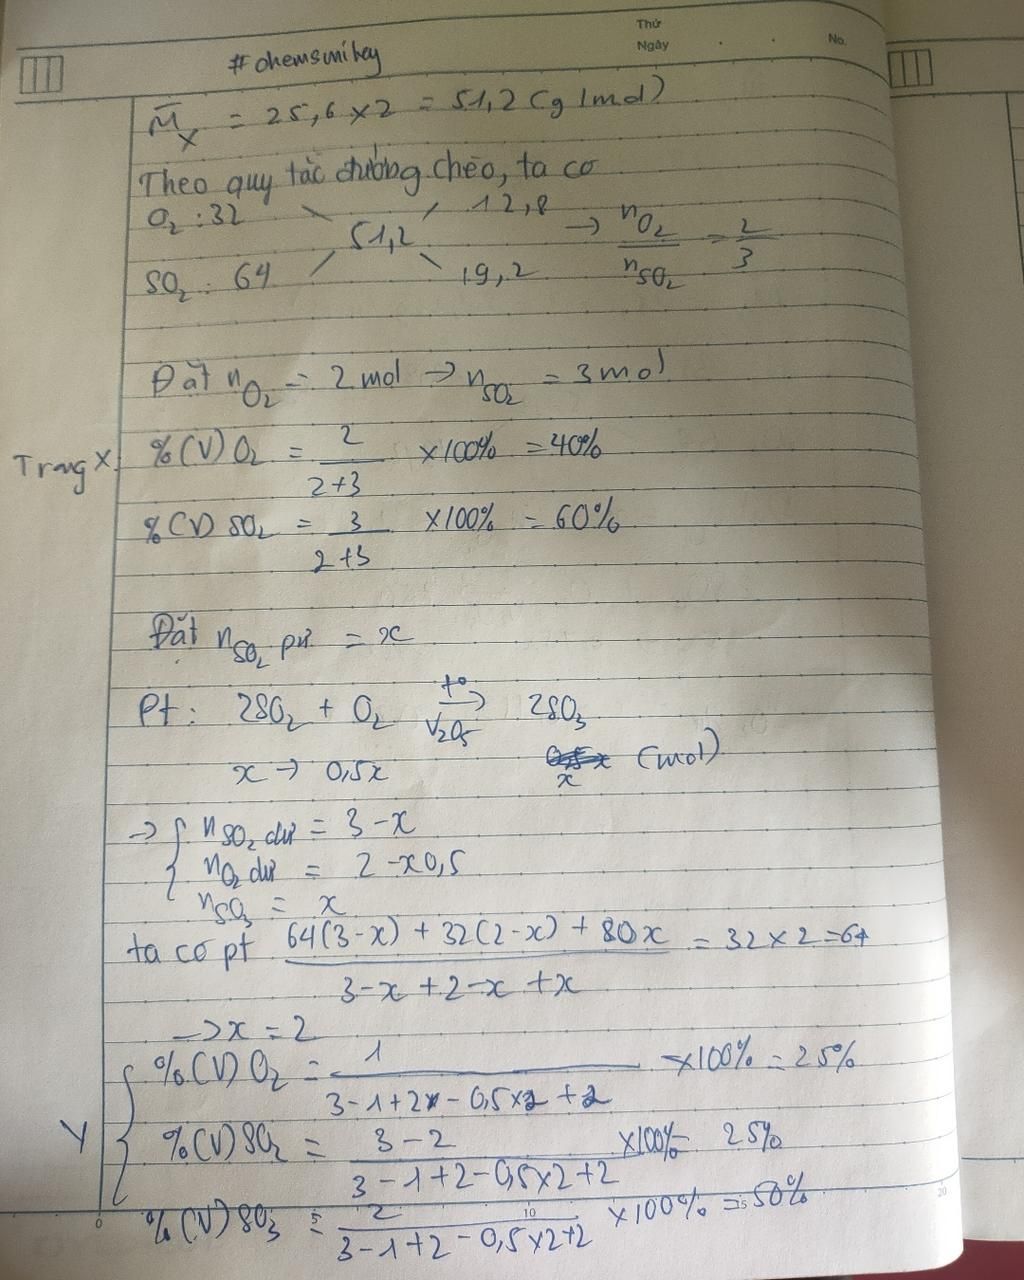 Thứ
Ngày
No.
#chemsunikey
M̄x = 25,6 x 2 = 51,2 (g/mol)
Theo quy tắc đường chéo, ta có
O₂ : 32 12,8
51,2 → nO₂/nSO₂ = 2/3
SO₂ : 64 19,2
Đặt nO₂ = 2 mol → nSO₂ = 3 mol
Trong X %(V) O₂ = 2/(2+3) x 100% = 40%
%(V) SO₂ = 3/(2+3) x 100% = 60%
Đặt nSO₂ pư = x
Pt : 2SO₂ + O₂ →(t°, V₂O₅) 2SO₃
x → 0,5x x (mol)
→ { nSO₂ dư = 3 - x
nO₂ dư = 2 - x0,5
nSO₃ = x
ta có pt (64(3-x) + 32(2-x) + 80x)/(3-x+2-x+x) = 32 x 2 = 64
→ x = 2
Y { %(V) O₂ = 1/(3-1+2-0,5x2+2) x100% = 25%
%(V) SO₂ = (3-2)/(3-1+2-0,5x2+2) x100% = 25%
%(V) SO₃ = 2/(3-1+2-0,5x2+2) x100% = 50%
0 5 10 15 20